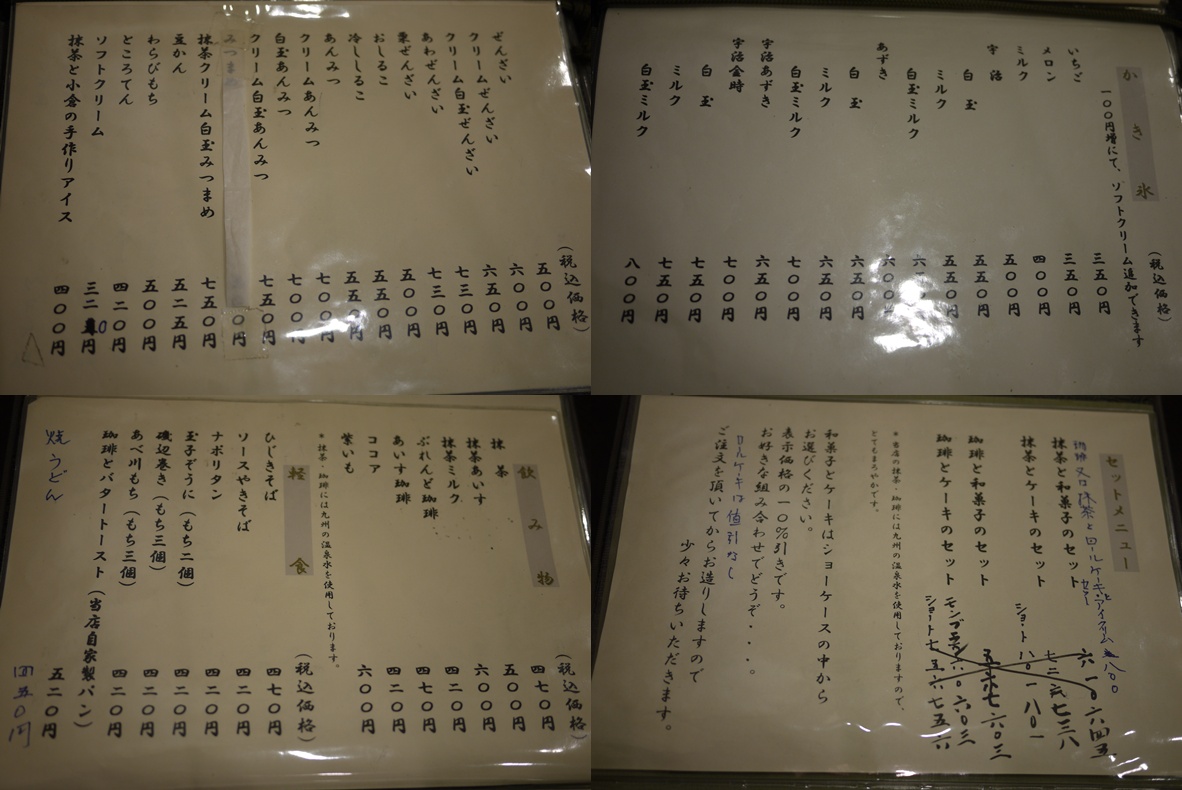 (税込価格)
ぜんざい 五〇〇円
クリームぜんざい 六〇〇円
クリーム白玉ぜんざい 六五〇円
あわぜんざい 七三〇円
栗ぜんざい 七三〇円
おしるこ 五〇〇円
冷ししるこ 五五〇円
あんみつ 五五〇円
クリームあんみつ 七〇〇円
白玉あんみつ 七〇〇円
クリーム白玉あんみつ 七五〇円
みつまめ 〇円
抹茶クリーム白玉みつまめ 七五〇円
豆かん 五二五円
わらびもち 五〇〇円
ところてん 四二〇円
ソフトクリーム 三二0円
抹茶と小倉の手作りアイス 四〇〇円
かき氷
(税込価格)
一〇〇円増にて、ソフトクリーム追加できます
いちご 三五〇円
メロン 三五〇円
ミルク 四〇〇円
宇治 五〇〇円
白玉 五五〇円
ミルク 五五〇円
白玉ミルク
あずき
白玉 六五〇円
ミルク 六五〇円
白玉ミルク 七〇〇円
宇治あずき 六五〇円
宇治金時 七〇〇円
白玉 七五〇円
ミルク 七五〇円
白玉ミルク 八〇〇円
飲み物
(税込価格)
抹茶 四七〇円
抹茶あいす 五〇〇円
抹茶ミルク 六〇〇円
ぶれんど珈琲 四二〇円
あいす珈琲 四七〇円
ココア 四二〇円
紫いも 六〇〇円
*抹茶・珈琲には九州の温泉水を使用しております。
軽食
(税込価格)
ひじきそば 四七〇円
ソースやきそば 四二〇円
ナポリタン 四二〇円
玉子ぞうに(もち二個) 四二〇円
磯辺巻き(もち三個) 四二〇円
あべ川もち(もち三個) 四二〇円
珈琲とバタートースト(当店自家製パン) 五二〇円
焼うどん 四五0円
セットメニュー
珈琲又は抹茶とロールケーキと
抹茶と和菓子のセット 六四五
抹茶とケーキのセット 七三八
ショート 八〇一
珈琲と和菓子のセット 六〇三
珈琲とケーキのセット 六〇三
ショート 七五六
*当店の抹茶・珈琲には九州の温泉水を使用しておりますので、
とてもまろやかです。
和菓子とケーキはショーケースの中から
お選びください。
表示価格の一〇%引きです。
お好きな組み合わせでどうぞ・・・。
ロールケーキは値引なし
ご注文を頂いてからお造りしますので
少々お待ちいただきます。